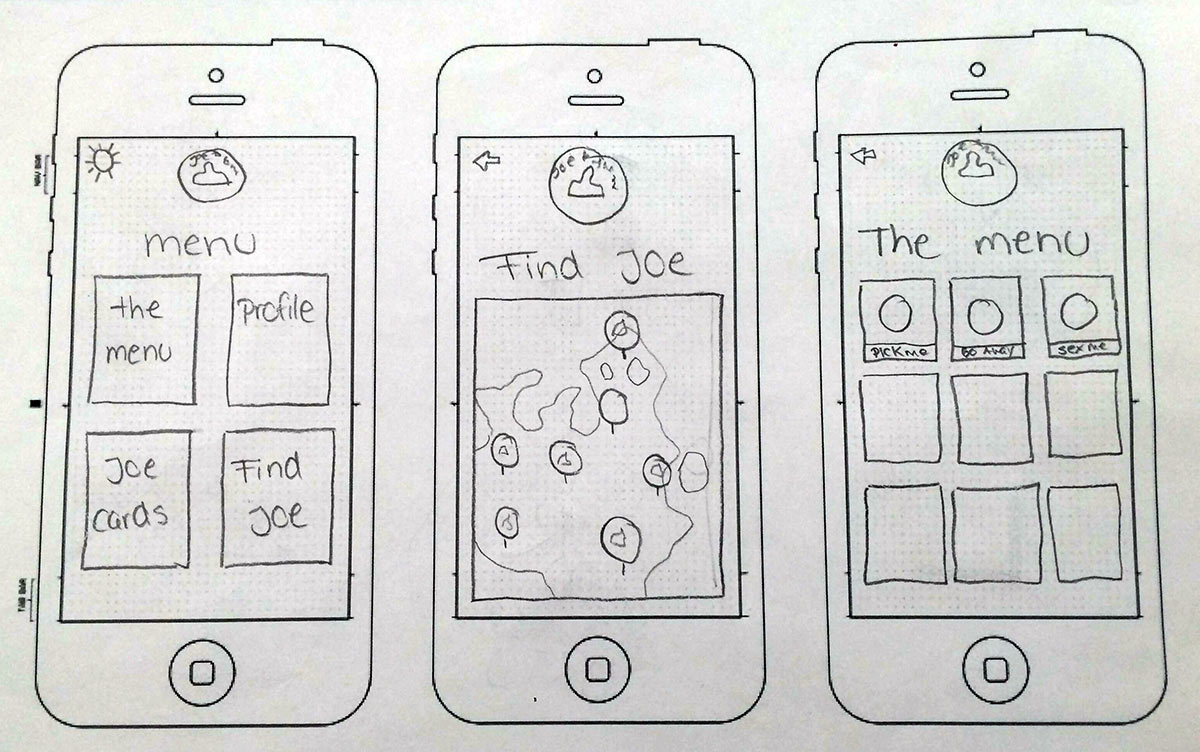 NAV BAR
TAB BAR
menu
the
menu
Profile
Joe
cards
Find
Joe
Joe &
Find Joe
The menu
PICK ME
GO AWAY
sex me